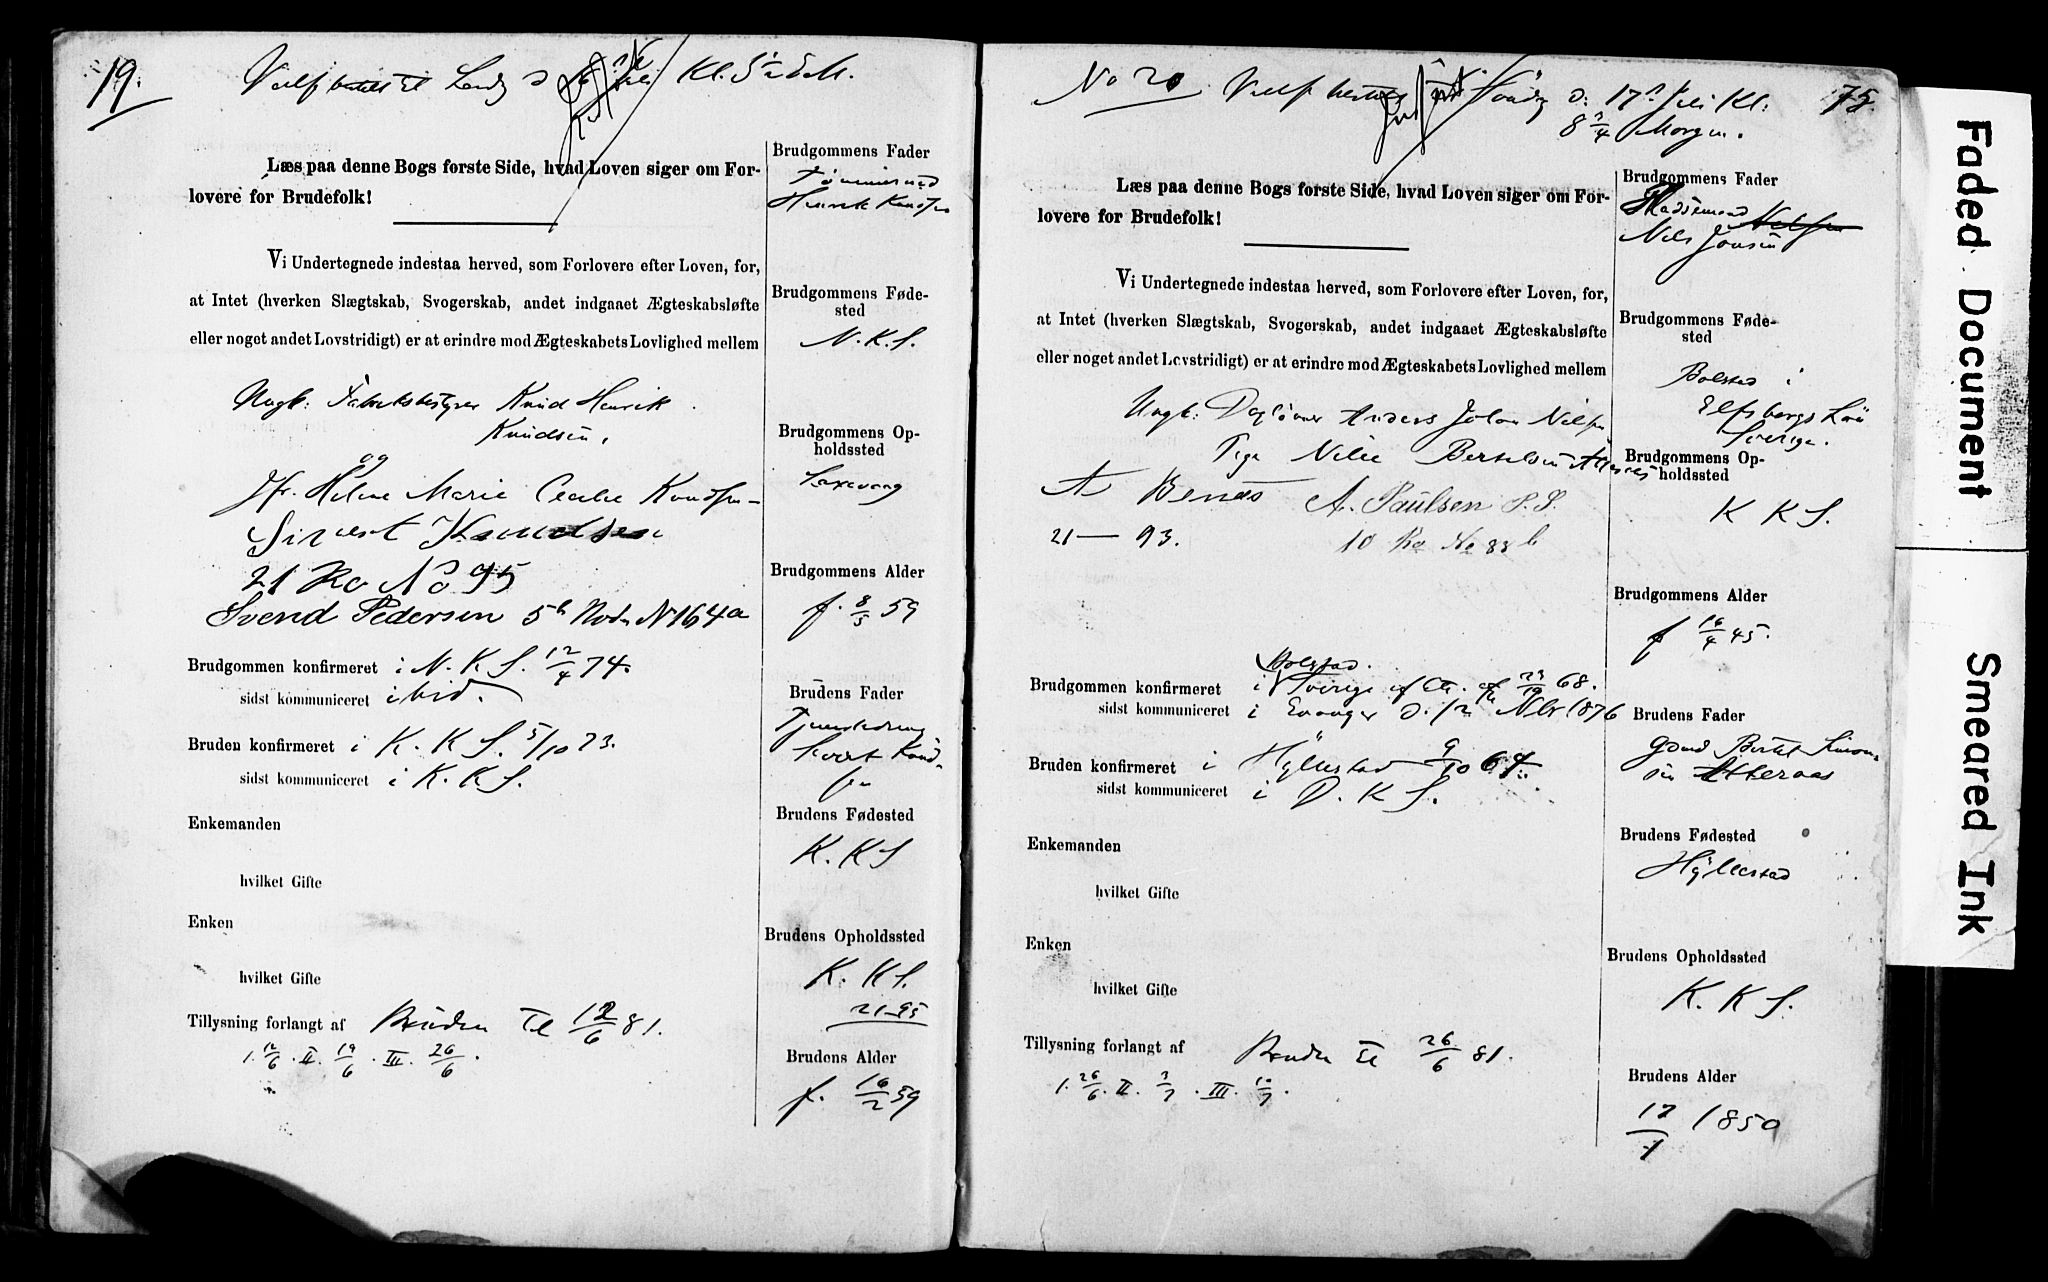 19.
Kl. 5½ E.M.
Læs paa denne Bogs første Side, hvad Loven siger om For-
lovere for Brudefolk!
Vi Undertegnede indestaa herved, som Forlovere efter Loven, for,
at Intet (hverken Slægtskab, Svogerskab, andet indgaaet Ægteskabsløfte
eller noget andet Lovstridigt) er at erindre mod Ægteskabets Lovlighed mellem
Ungk: Fabrikbestyrer Knud Henrik
Knudsen,
og
Jfr. Helene Marie Knudsen
Sivert Knudsen
21 Ro No 95
Svend Pedersen 5te Rode N 164a
Brudgommen konfirmeret i N. K. S. 12/4 74.
sidst kommuniceret ibid.
Bruden konfirmeret i K. K. S. 5/10 73.
sidst kommuniceret i K. K. S.
Enkemanden
hvilket Gifte
Enken
hvilket Gifte
Tillysning forlangt af Bruden til 12/6 81.
I. 12/6 . II. 19/6 . III. 26/6 .
Brudgommens Fader
Tømmermand
Henrik Knudsen
Brudgommens Føde-
sted
N. K. S.
Brudgommens Op-
holdssted
Laxevaag
Brudgommens Alder
f. 8/3 59
Brudens Fader
Brudens Fødested
K. K. S
Brudens Opholdssted
K. K. S.
21-95
Brudens Alder
f. 16/2 59
No 20 Vielse bestilt Søndag d: 17de Juli Kl: 75.
8 3/4 Morgen.
Læs paa denne Bogs første Side, hvad Loven siger om For-
lovere for Brudefolk!
Vi Undertegnede indestaa herved, som Forlovere efter Loven, for,
at Intet (hverken Slægtskab, Svogerskab, andet indgaaet Ægteskabsløfte
eller noget andet Lovstridigt) er at erindre mod Ægteskabets Lovlighed mellem
Ungk: Dagløner Anders Johan Nilsen
Pige Nilie Bertelsen Atteraas
A Benes A. Paulsen S. S.
21 — 93. 10 Ro No 83 b
Bolstad.
Brudgommen konfirmeret i Sverige
sidst kommuniceret i Evanger 1876
Bruden konfirmeret i Hyllestad 9/10 64
sidst kommuniceret i D. K. S.
Enkemanden
hvilket Gifte
Enken
hvilket Gifte
Tillysning forlangt af Bruden til 26/6 81.
I. 26/6 . II. 3/7 . III. 10/7 .
Brudgommens Fader
Nils Jonsen
Brudgommens Føde-
sted
Bolstad i
Elfsborgs Län
Sverige.
Brudgommens Op-
holdssted
K K S.
Brudgommens Alder
f 16/4 45.
Brudens Fader
Gmd Bertel Simon-
sen Atteraas
Brudens Fødested
Hyllestad
Brudens Opholdssted
K. K S.
Brudens Alder
17/1 1850
Faded Document
Smeared Ink